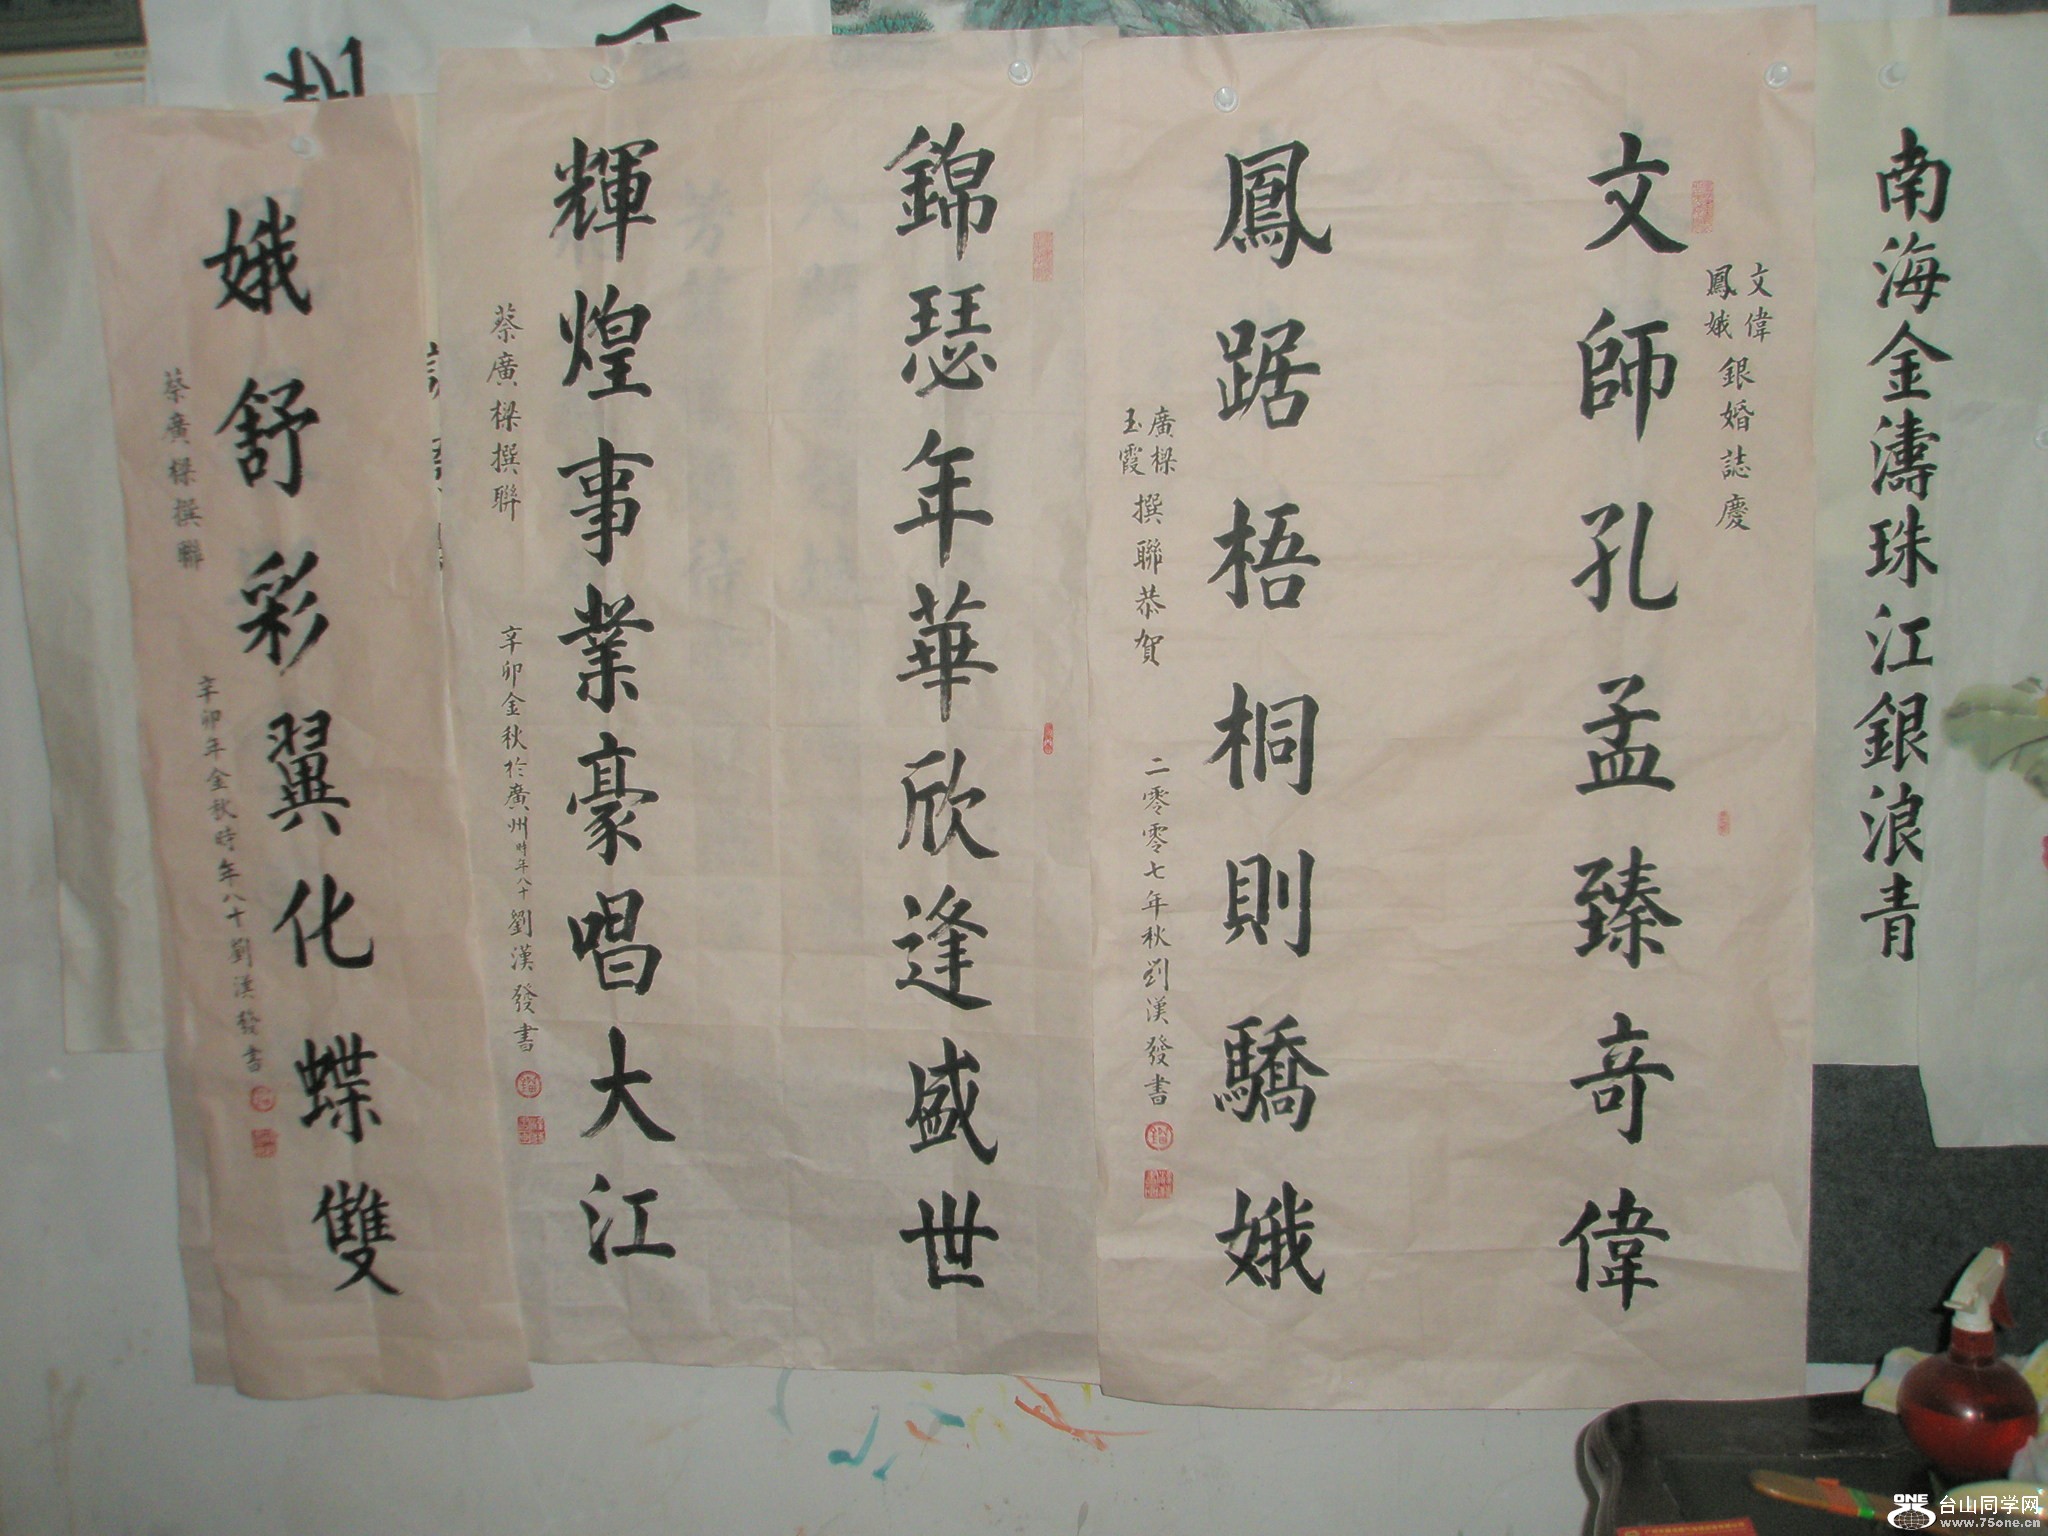 南海金濤珠江銀浪青
文偉
鳳娥
銀婚誌慶
文師孔孟臻奇偉
鳳踞梧桐則驕娥
廣樑
玉霞
撰聯恭賀
二零零七年秋劉漢發書
錦瑟年華欣逢盛世
輝煌事業豪唱大江
蔡廣樑撰聯
辛卯金秋於廣州時年八十劉漢發書
娥舒彩翼化蝶雙
蔡廣樑撰聯
辛卯年金秋時年八十劉漢發書
ONE
台山同学网
www.75one.cn